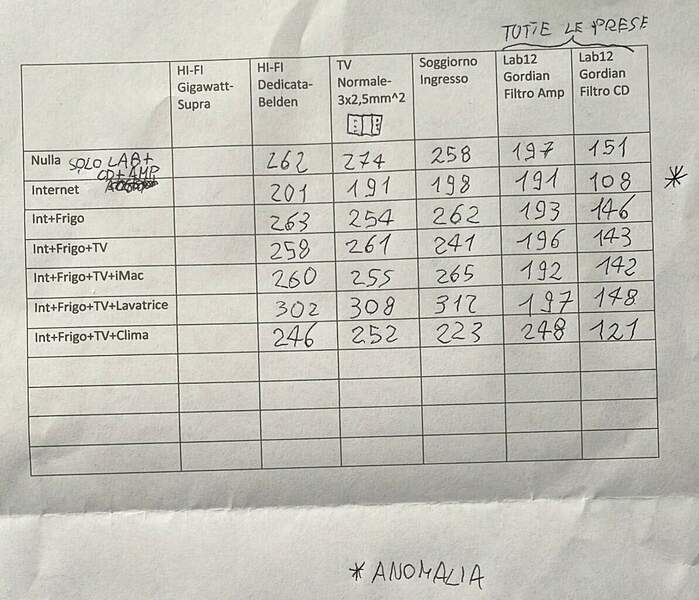 TUTTE LE PRESE
HI-FI Gigawatt-Supra | HI-FI Dedicata-Belden | TV Normale-3x2,5mm^2 | Soggiorno Ingresso | Lab12 Gordian Filtro Amp | Lab12 Gordian Filtro CD
Nulla SOLO LAB+ CD+AMP | 262 | 274 | 258 | 197 | 151
Internet | 201 | 191 | 198 | 191 | 108 *
Int+Frigo | 263 | 254 | 262 | 193 | 146
Int+Frigo+TV | 258 | 261 | 241 | 196 | 143
Int+Frigo+TV+iMac | 260 | 255 | 265 | 192 | 142
Int+Frigo+TV+Lavatrice | 302 | 308 | 312 | 197 | 148
Int+Frigo+TV+Clima | 246 | 252 | 223 | 248 | 121
* ANOMALIA